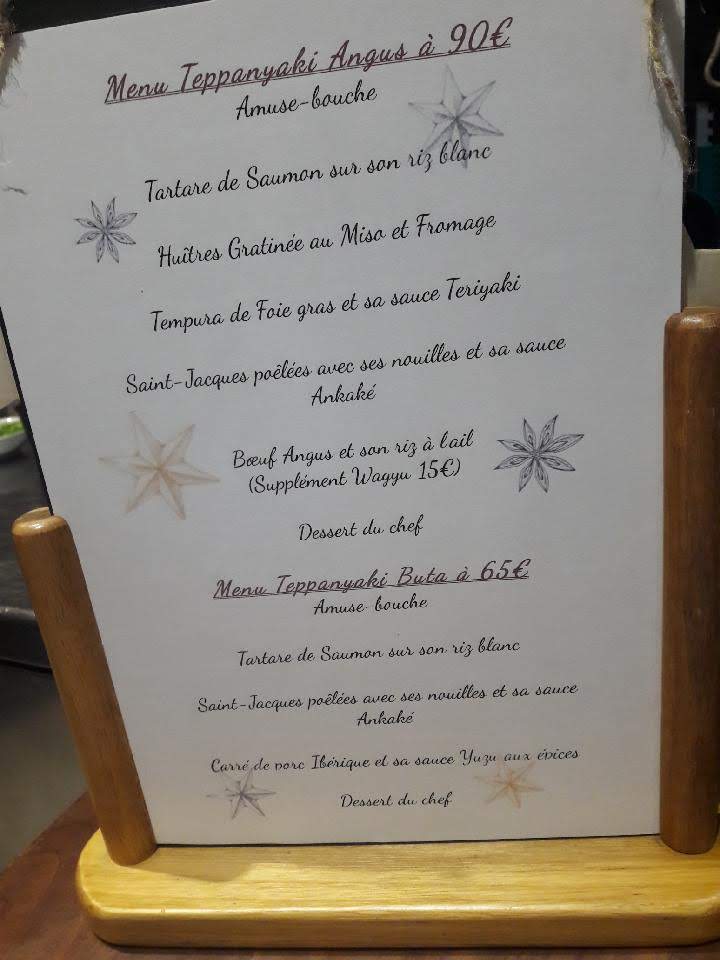 Menu Teppanyaki Angus à 90€
Amuse-bouche
Tartare de Saumon sur son riz blanc
Huîtres Gratinée au Miso et Fromage
Tempura de Foie gras et sa sauce Teriyaki
Saint-Jacques poêlées avec ses nouilles et sa sauce
Ankaké
Bœuf Angus et son riz à lail
(Supplément Wagyu 15€)
Dessert du chef
Menu Teppanyaki Buta à 65€
Amuse-bouche
Tartare de Saumon sur son riz blanc
Saint-Jacques poêlées avec ses nouilles et sa sauce
Ankaké
Carré de porc Ibérique et sa sauce Yuzu aux épices
Dessert du chef